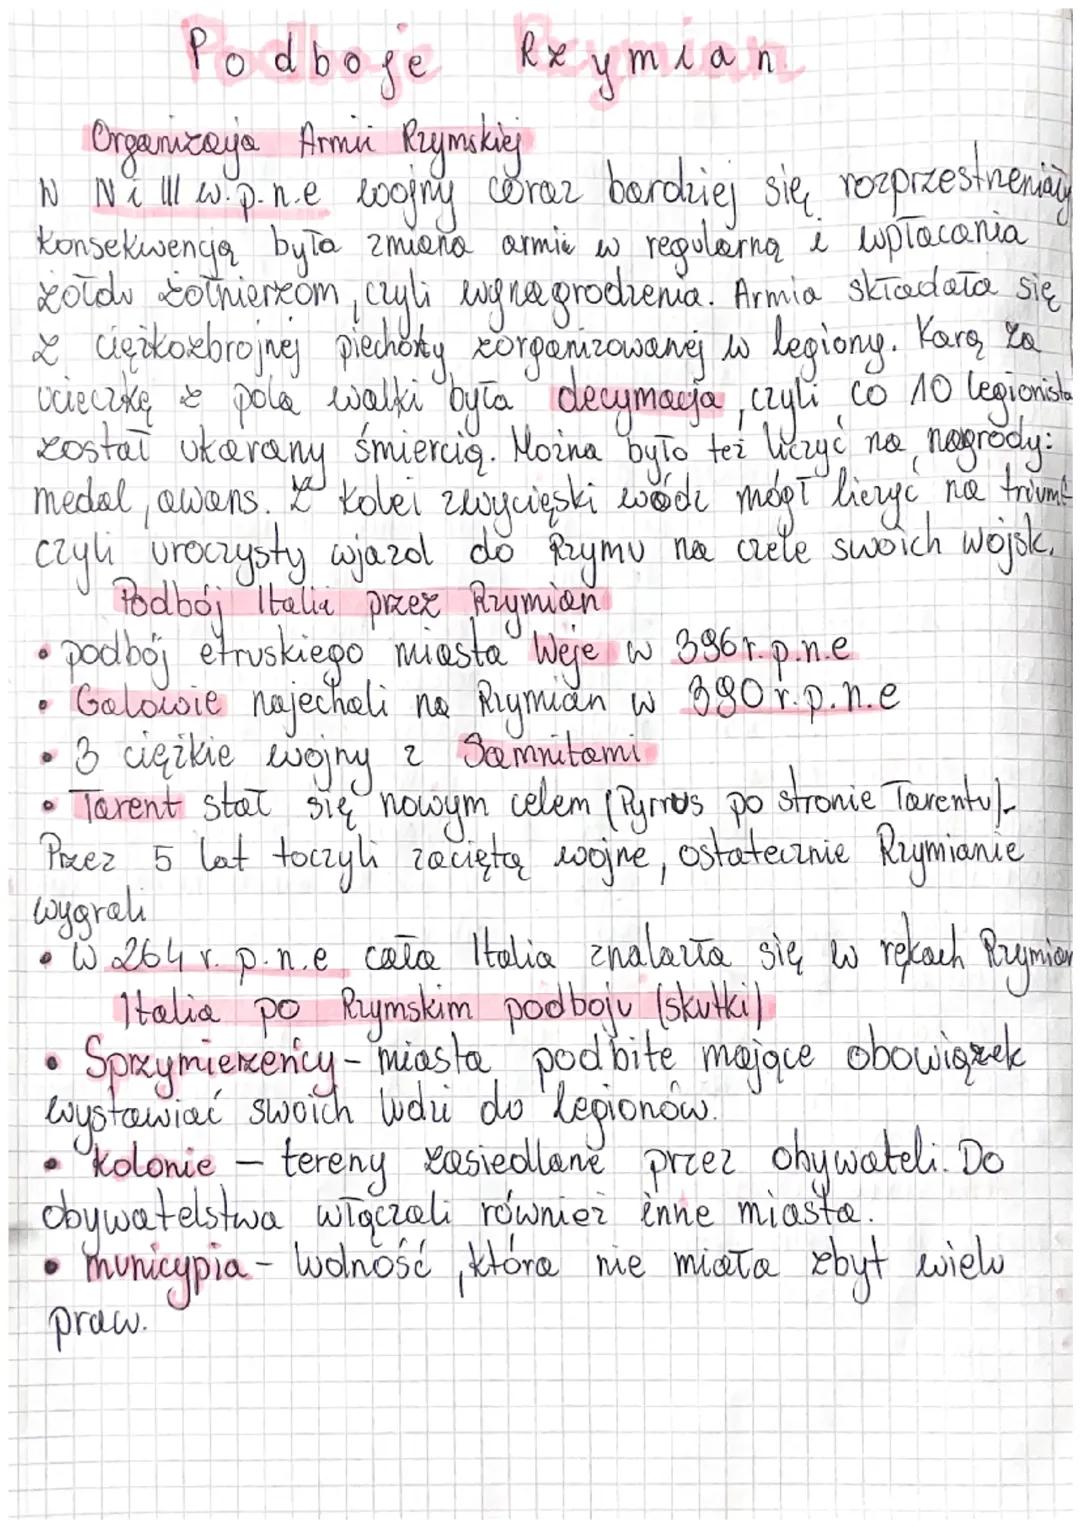 Podboje Rzymian
Organizacja Armii Rzymskiej
W IV i III w.p.n.e wojny coraz bardziej się rozprzestrzeniały
konsekwencją była zmiana armii w regularną i wpłacania
żołdu żołnierzom, czyli wynagrodzenia. Armia składała się
z ciężkozbrojnej piechoty zorganizowanej w legiony. Karą za
ucieczkę z pola walki była decymacja, czyli co 10 legionista
został ukarany śmiercią. Można było też liczyć na nagrody:
medal, awans. Z kolei zwycięski wódz mógł liczyć na triumf
czyli uroczysty wjazd do Rzymu na czele swoich wojsk.
Podbój Italii przez Rzymian
• podbój etruskiego miasta Weje w 396r.p.n.e
• Galowie najechali na Rzymian w 390r.p.n.e
• 3 ciężkie wojny z Samnitami
• Tarent stał się nowym celem (Pyrrus po stronie Tarentu).
Przez 5 lat toczyli zaciętą wojne, ostatecznie Rzymianie
wygrali
• W 264 r. p.n.e cała Italia znalazła się w rękach Rzymian
Italia po Rzymskim podboju (skutki)
• Sprzymierzeńcy - miasta podbite mające obowiązek
wystawiać swoich ludzi do legionów.
• kolonie – tereny zasiedlane przez obywateli. Do
obywatelstwa włączali również inne miasta.
• municypia - wolność, która nie miała zbyt wielu
praw.